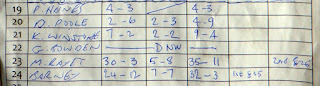 19 P. HEINES 4-3 4-3
20 D. POOLE 2-6 2-3 4-9
21 K. WINSTONE 7-2 2-2 9-4
22 G. BOWDEN DNW
23 M. RAYET 30-3 5-8 35-11 2nd £26
24 BARNEY 24-12 7-7 32-3 1st £45